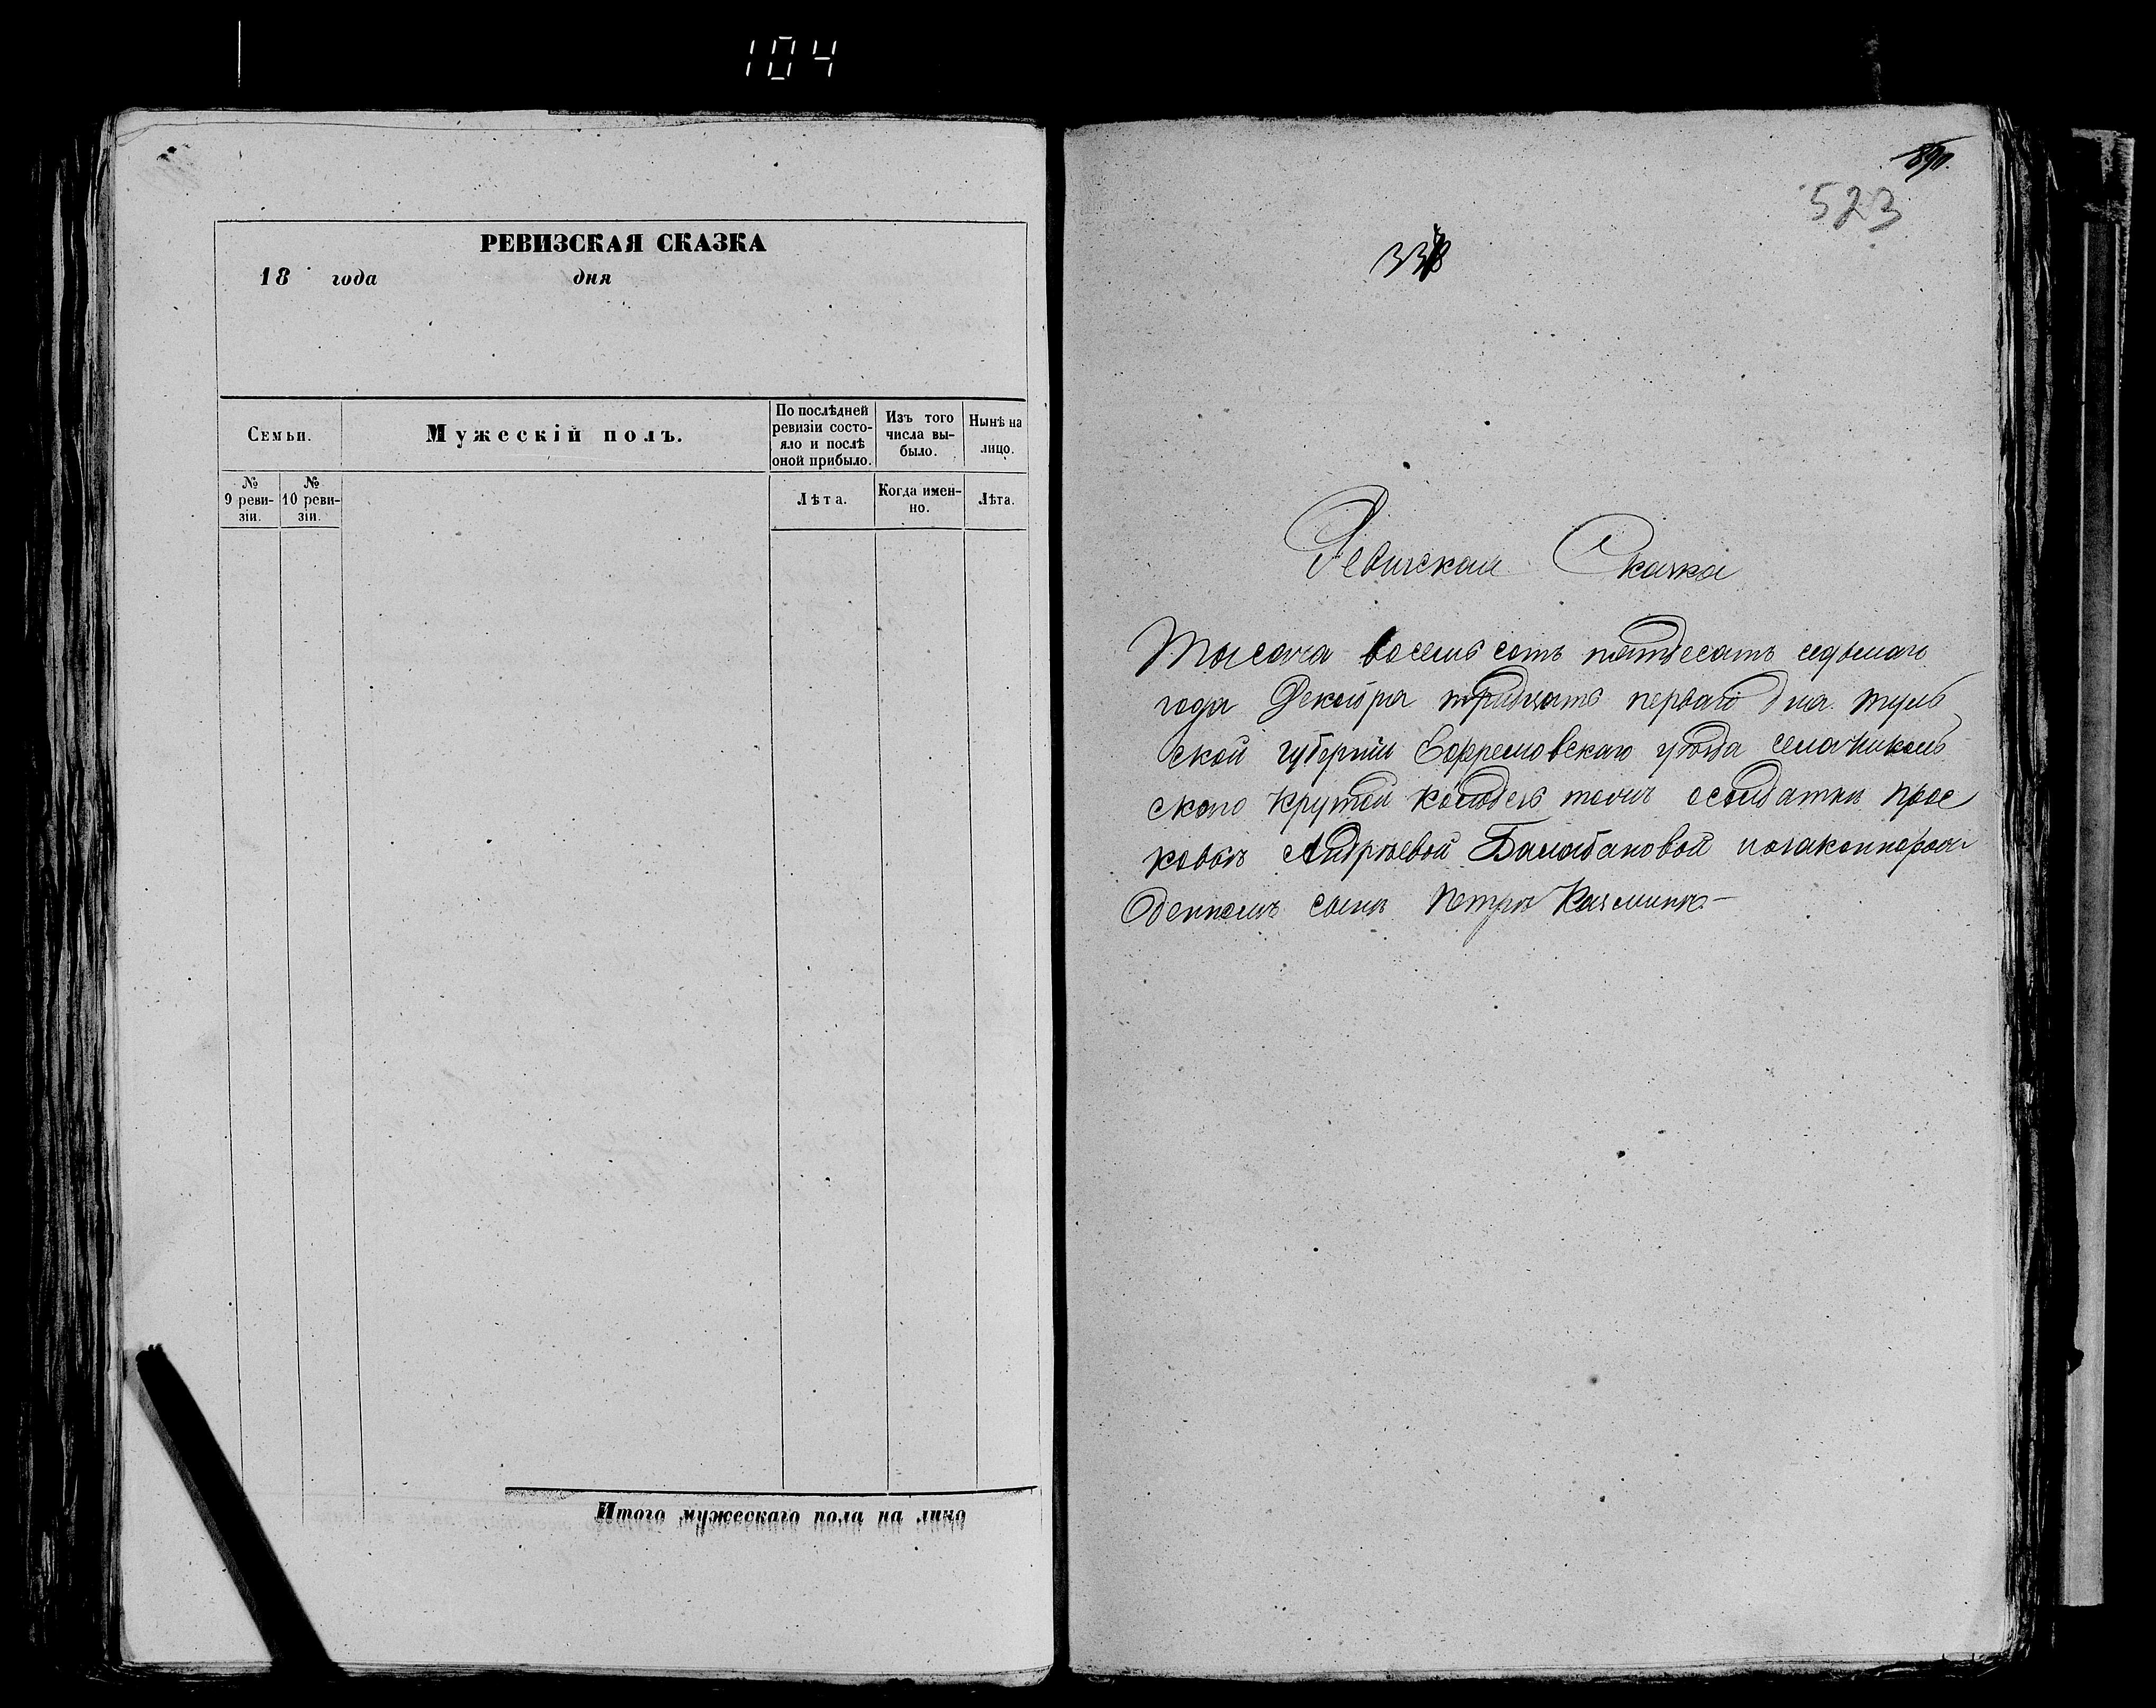 104
РЕВИЗСКАЯ СКАЗКА
18 года дня
Семьи.
Мужескій полъ.
По послѣдней ревизіи состояло и послѣ оной прибыло.
Изъ того числа выбыло.
Нынѣ на лицо.
№ 9 ревизіи.
№ 10 ревизіи.
Лѣта.
Когда именно.
Лѣта.
Итого мужескаго пола на лицо
523
Ревизская Сказка
Тысеча восемь сотъ пятдесятъ седьмаго
года Декабря тридцать перваго дня туль
ской губерніи Ефремовскаго уѣзда села Николь
скаго Крутой колодезь тожъ осолдатки прос
ковьѣ Андрѣевой Балабановой и
денномъ сынѣ Петрѣ Казминѣ